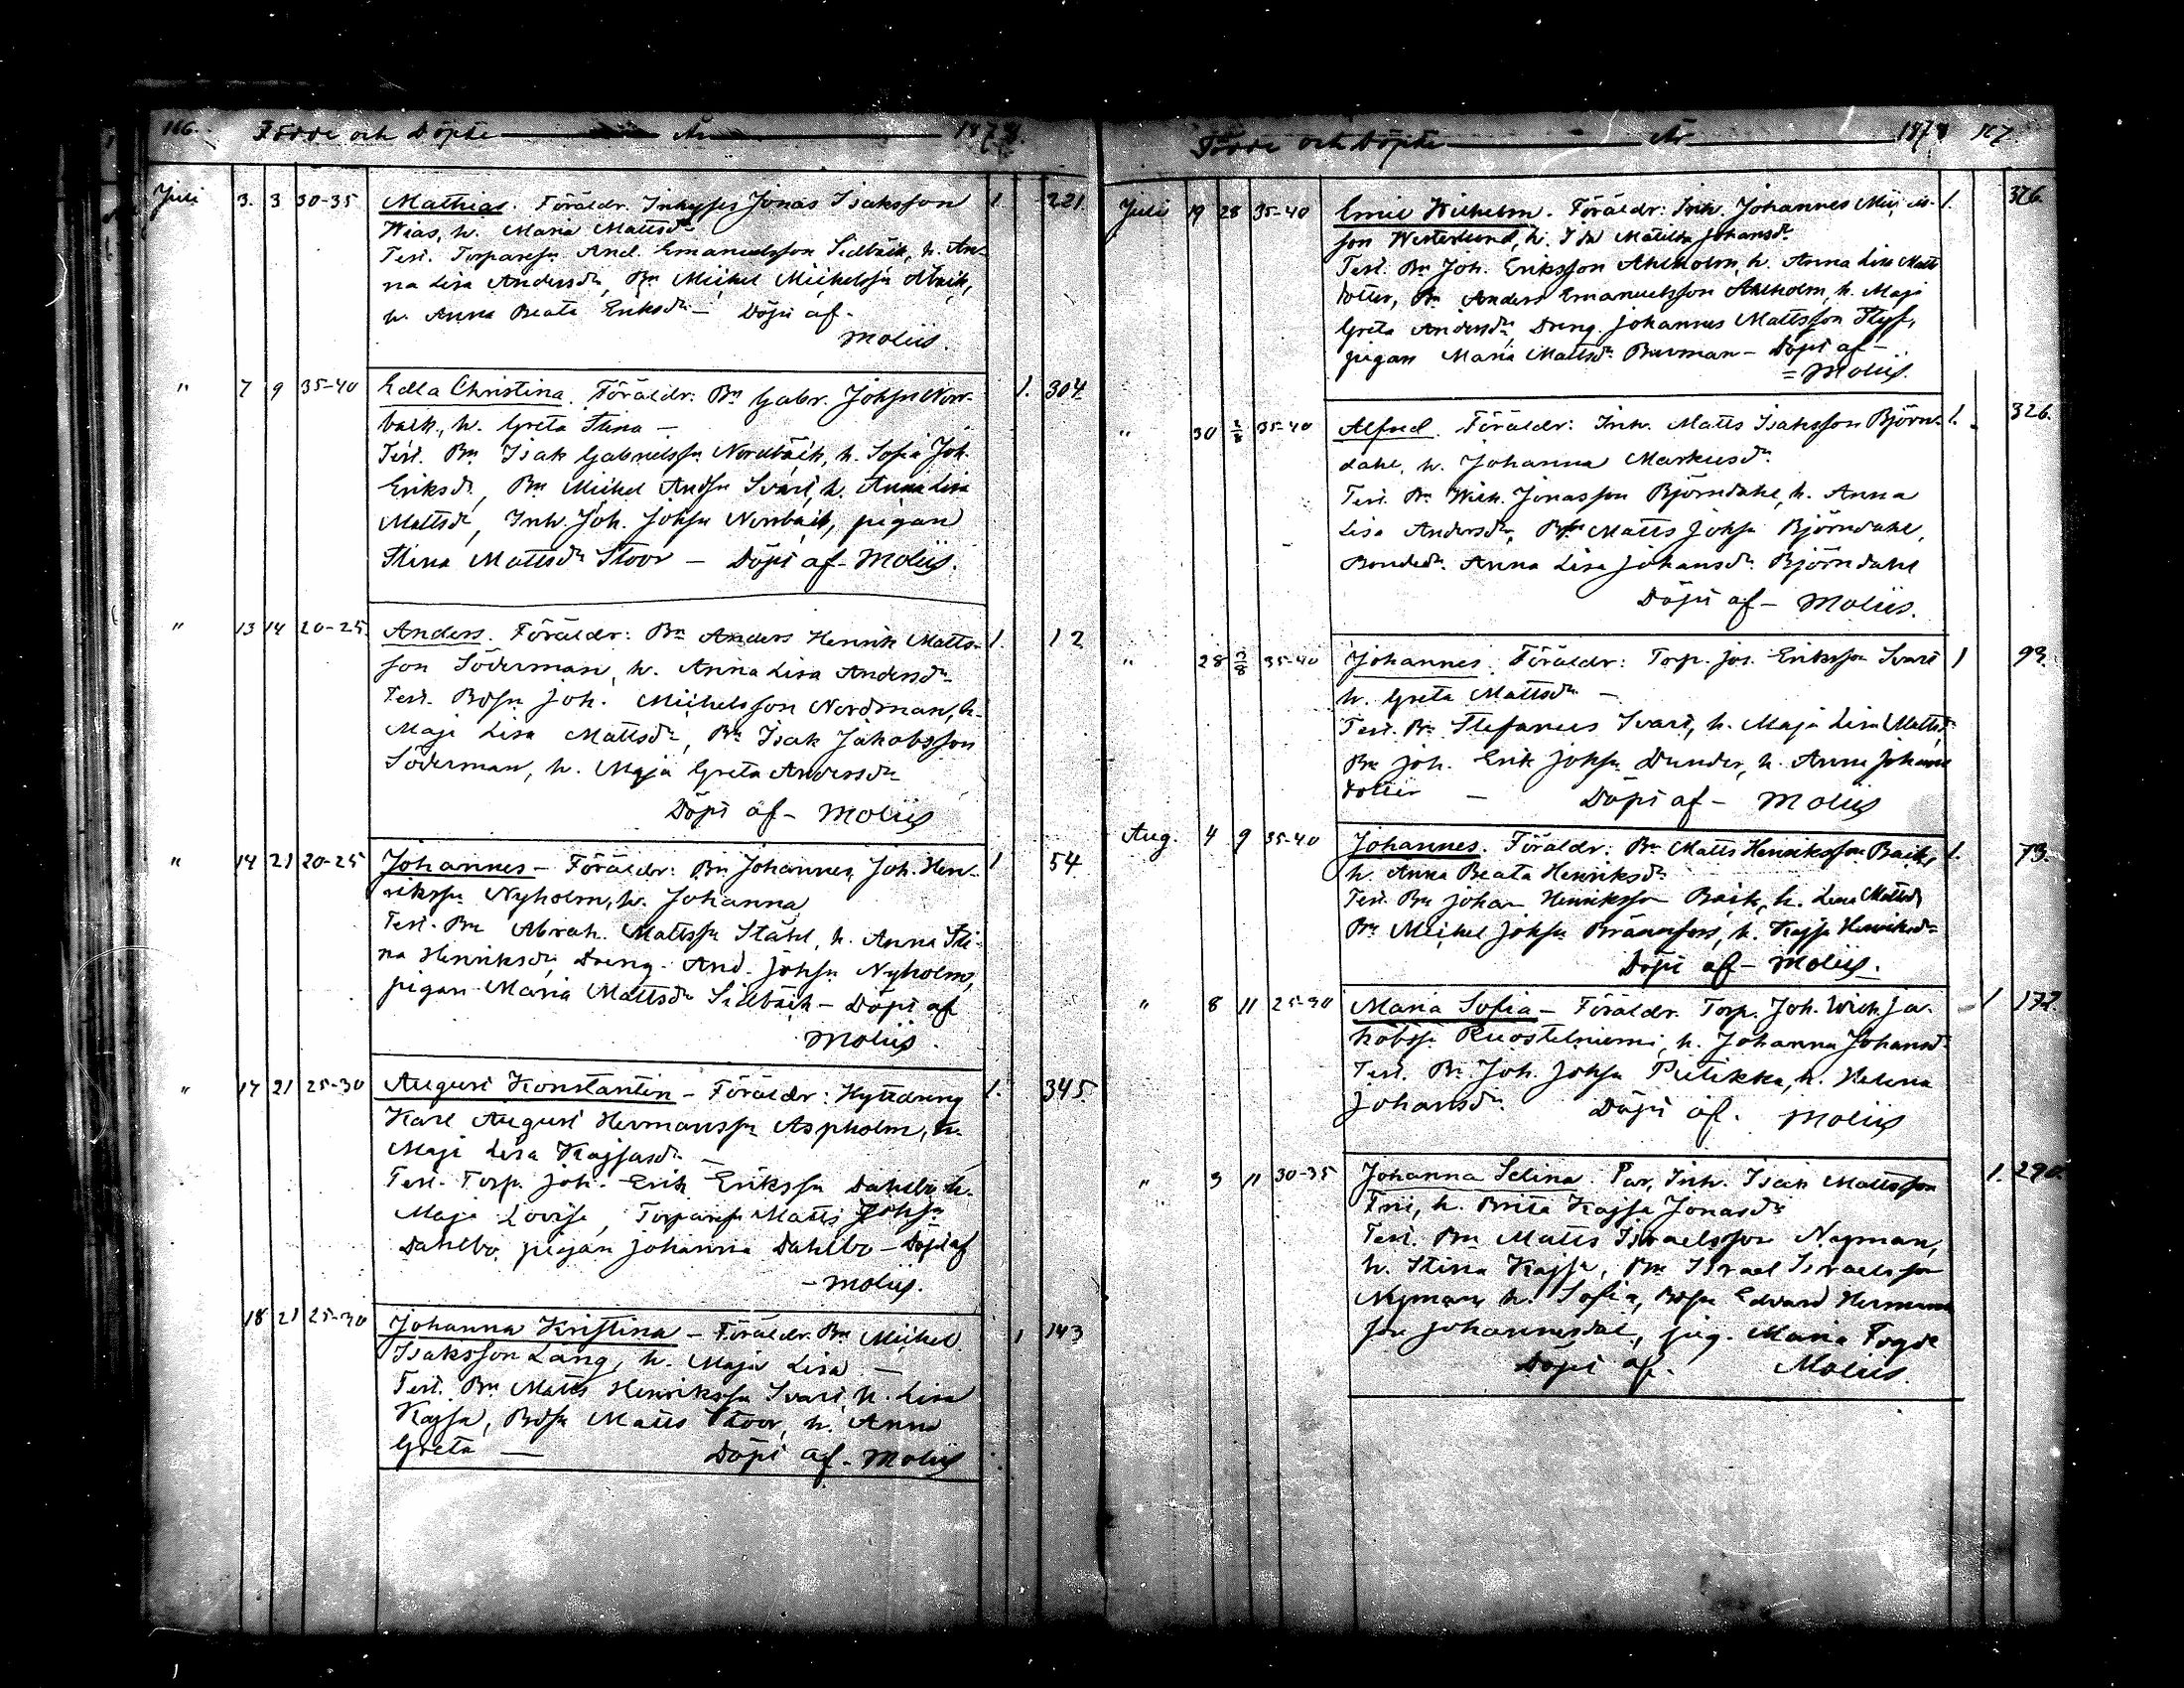 116. Födde och Döpte — År — 1878.
Juli 3. 3 30-35 Mathias. Föräldr. Inhyses Jonas Isaksson 1. 221.
Wias, h. Maria Mattsdr
Test. Torparesn And. Emanuelsson Sidbäck, h. An-
na Lisa Andersdr, Bn Michel Michelssn
h. Anna Beata Eriksdr — Döpt af -
Moliis.
" 7 9 35-40 Edla Christina. Föräldr: Bn Gabr. Johsn Norr-
1. 304.
back, h. Greta Stina —
Test. Bn Isak Gabrielssn Nordbäck, h. Sofia Joh.
Eriksdr, Bn Michel Andsn Svart, h. Anna Lisa
Mattsdr, Inh. Joh. Johsn Norrbäck, pigan
Stina Mattsdr Stoor — Döpt af - Moliis.
" 13 14 20-25. Anders. Föräldr: Bn Anders Henrik Matts- 1. 12
son Söderman, h. Anna Lisa Andersdr
Test. Bdsn Joh. Michelsson Nordman, h.
Maja Lisa Mattsdr, Bn Isak Jakobsson
Söderman, h. Maja Greta Andersdr
Döpt af - Moliis
" 14 21 20-25 Johannes — Föräldr: Bn Johannes Joh. Hen- 1 54
rikssn Nyholm, h. Johanna
Test. Bn Abrah. Mattssn Ståhl, h. Anna Sti-
na Henriksdr, Dreng. And. Johsn Nyholm,
pigan Maria Mattsdr Sidbäck — Döpt af
Moliis.
" 17 21 25-30 August Konstantin — Föräldr: Hyttdreng 1. 345.
Karl August Hermanssn Aspholm, h.
Maja Lisa Kajsasdr —
Test. Torp. Joh. Erik Erikssn Dahlbo, h.
Maja Lovisa, Torparesn Matts Johsn
Dahlbo, pigan Johanna Dahlbo — Döpt af
— Moliis.
18 21 25-30 Johanna Kristina — Föräldr. Bn Michel 1 143
Isaksson Lång, h. Maja Lisa —
Test. Bn Matts Henrikssn Svart, h. Lisa
Kajsa, Bdsn Matts Stoor, h. Anna
Greta — Döpt af - Moliis
Födde och Döpte — År — 1878 117.
Juli 19 28 35-40 Emil Wilhelm. Föräldr: Inh. Johannes 1. 376.
son Westerlund, h. Ida Matilda Johansdr
Test. Bn Joh. Eriksson Ahlholm, h. Anna Lisa Matts
dotter, Bn Anders Emanuelsson Ahlholm, h. Maja
Greta Andersdr, Dreng. Johannes Mattsson Flyt,
pigan Maria Mattsdr Burman — Döpt af —
= Moliis.
" 30 2/8 35-40 Alfred. Föräldr: Inh. Matts Isaksson Björn- 1. 326.
dahl, h. Johanna Markusdr
Test. Bn Wilh. Jonasson Björndahl, h. Anna
Lisa Andersdr, Bdsn Matts Johsn Björndahl,
Bondedr. Anna Lisa Johansdr Björndahl
Döpt af — Moliis.
" 28 3/8 35-40 Johannes. Föräldr: Torp. Jos. Eriksson Svart 1 93.
h. Greta Mattsdr —
Test. Bn Stefanus Svart, h. Maja Lisa Mattsdr
Bn Joh. Erik Johsn Dunder, h. Anna Johans
dotter — Döpt af - Moliis
Aug. 4 9 35-40 Johannes. Föräldr: Bn Matts Henriksson Back, 1. 73.
h. Anna Beata Henriksdr
Test. Bn Johan Henriksson Back, h. Lena Mattsdr
Bn Michel Johsn Brännfors, h. Kajsa Henriksdr
Döpt af — Moliis.
" 8 11 25-30 Maria Sofia — Föräldr. Torp. Joh. Wilh. Ja- 1 177.
kobssn Ruostelniemi, h. Johanna Johansdr
Test. Bn Joh. Johsn Pietikka, h. Helena
Johansdr. Döpt af. Moliis
" 9 11 30-35 Johanna Selina. Par, Inh. Isak Mattsson 1. 290.
Frii, h. Brita Kajsa Jonasdr
Test. Bn Matts Israelsson Nyman,
h. Stina Kajsa, Bn Israel Israelsson
Nyman, h. Sofia, Bdsn Edvard Hermans
son Johannesdal, pig. Maria Fogde
Döpt af. Moliis.